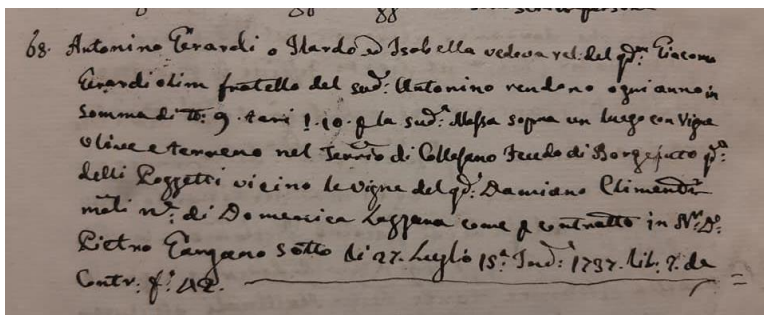 68. Antonino Gerardi o Ilardo ed Isabella vedova rel: del qdm: Giacomo
Gerardi olim fratello del sudo: Antonino rendono ogni anno in
Somma di tt: 9. tarì 1.10. p la suda: Massa sopra un luogo con Vigne
olive e terreno nel Terrio di Collesano Feudo di Borgefuto
delli Poggetti vicino le vigne del qd: Damiano Climenti
di Domenica come p contratto in Nr. Do:
Pietro Gargano sotto di 27. Luglio 15a Ind: 1737. lib. 2. de
Contr: fo: 42.